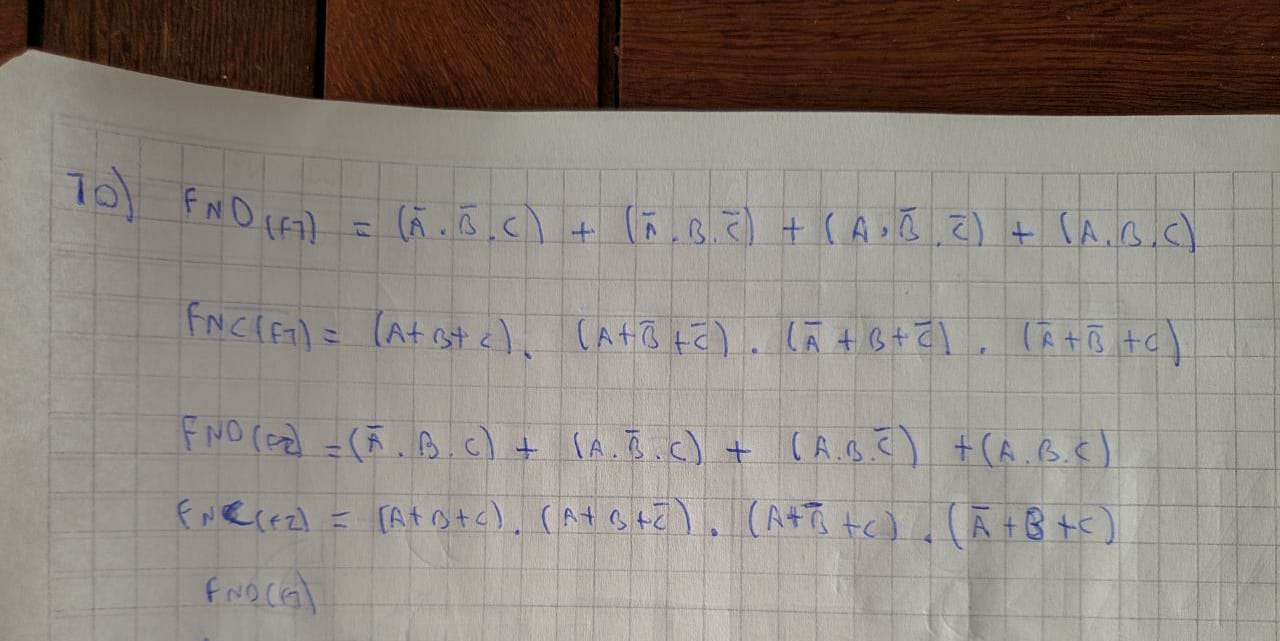 10) FND(F1) = (Ā.B̄.C) + (Ā.B.C̄) + (A.B̄.C̄) + (A.B.C)
FNC(F1) = (A+B+C). (A+B̄+C̄). (Ā+B+C̄). (Ā+B̄+C)
FND(F2) = (Ā.B.C) + (A.B̄.C) + (A.B.C̄) + (A.B.C)
FNC(F2) = (A+B+C). (A+B+C̄). (A+B̄+C). (Ā+B+C)
FND(F1)